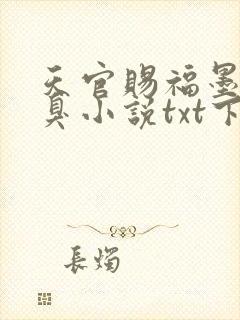 天官赐福墨
臭小说txt下
長燭